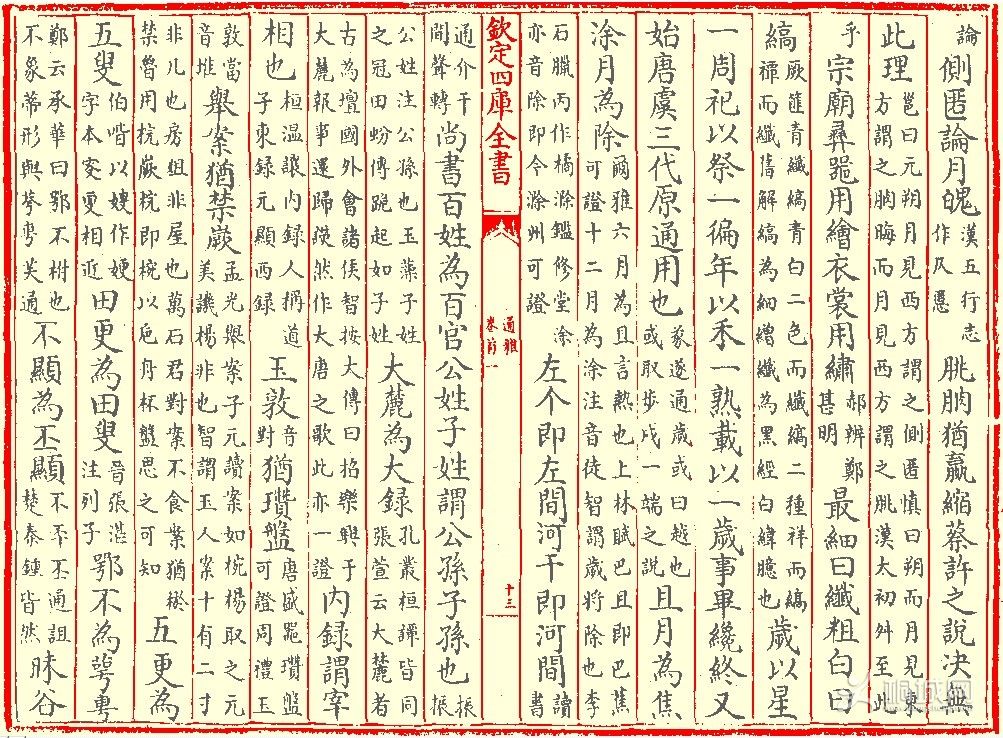 論側匿論月魄漢五行志作仄慝朓朒猶贏縮蔡許之說决無
此理邕曰元朔月見西方謂之側匿慎曰朔而月見東方謂之朒晦而月見西方謂之朓漢大初舛至此
乎宗廟彞器用繪衣裳用繡郝辨鄭甚明最細曰纖粗白曰
縞厥篚青纖縞青白二色而纖縞二種祥而縞禫而纖舊解縞為細繒纖為黑經白緯臆也歲以星
一周祀以祭一徧年以禾一熟載以一歲事畢纔終又
始唐虞三代原通用也彖遂通歲或曰越也或取步戌一端之說且月為焦
涂月為除爾雅六月為且言熱也上林賦巴且即巴蕉可證十二月為涂注音徒智謂歲將除也李
石臘丙作橘滁鑑修堂涂亦音除即今滁州可證左个即左間河干即河間讀書
欽定四庫全書
通雅
卷首一
十三
通介干間聲轉尚書百姓為百官公姓子姓謂公孫子孫也振振
公姓注公孫也玉藻子姓之冠田蚡傳跪起如子姓大麓為大録孔叢桓譚皆同張萱云大麓者
古為壇國外會諸侯智按大傳曰招樂興于大麓報事還歸然作大唐之歌此亦一證内録謂宰
相也桓溫讓内録人稱道子東録元顯西録玉敦音對猶瓉盤唐盛器瓉盤可證周禮玉
敦當音堆舉案猶禁嶡孟光舉案子元讀案如椀楊取之元美譏楊非也智謂玉人案十有二寸
非几也房俎非屋也萬石君對案不食案猶棜禁魯用梡嶡梡即椀以巵舟杯盤思之可知五更為
五叟伯喈以嫂作㛐字本叜更相近田更為田叟晉張湛注列子鄂不為萼
鄭云承華曰鄂不柎也不象蒂形與蕚通不顯為丕顯不丕通詛楚秦鍾皆然昧谷